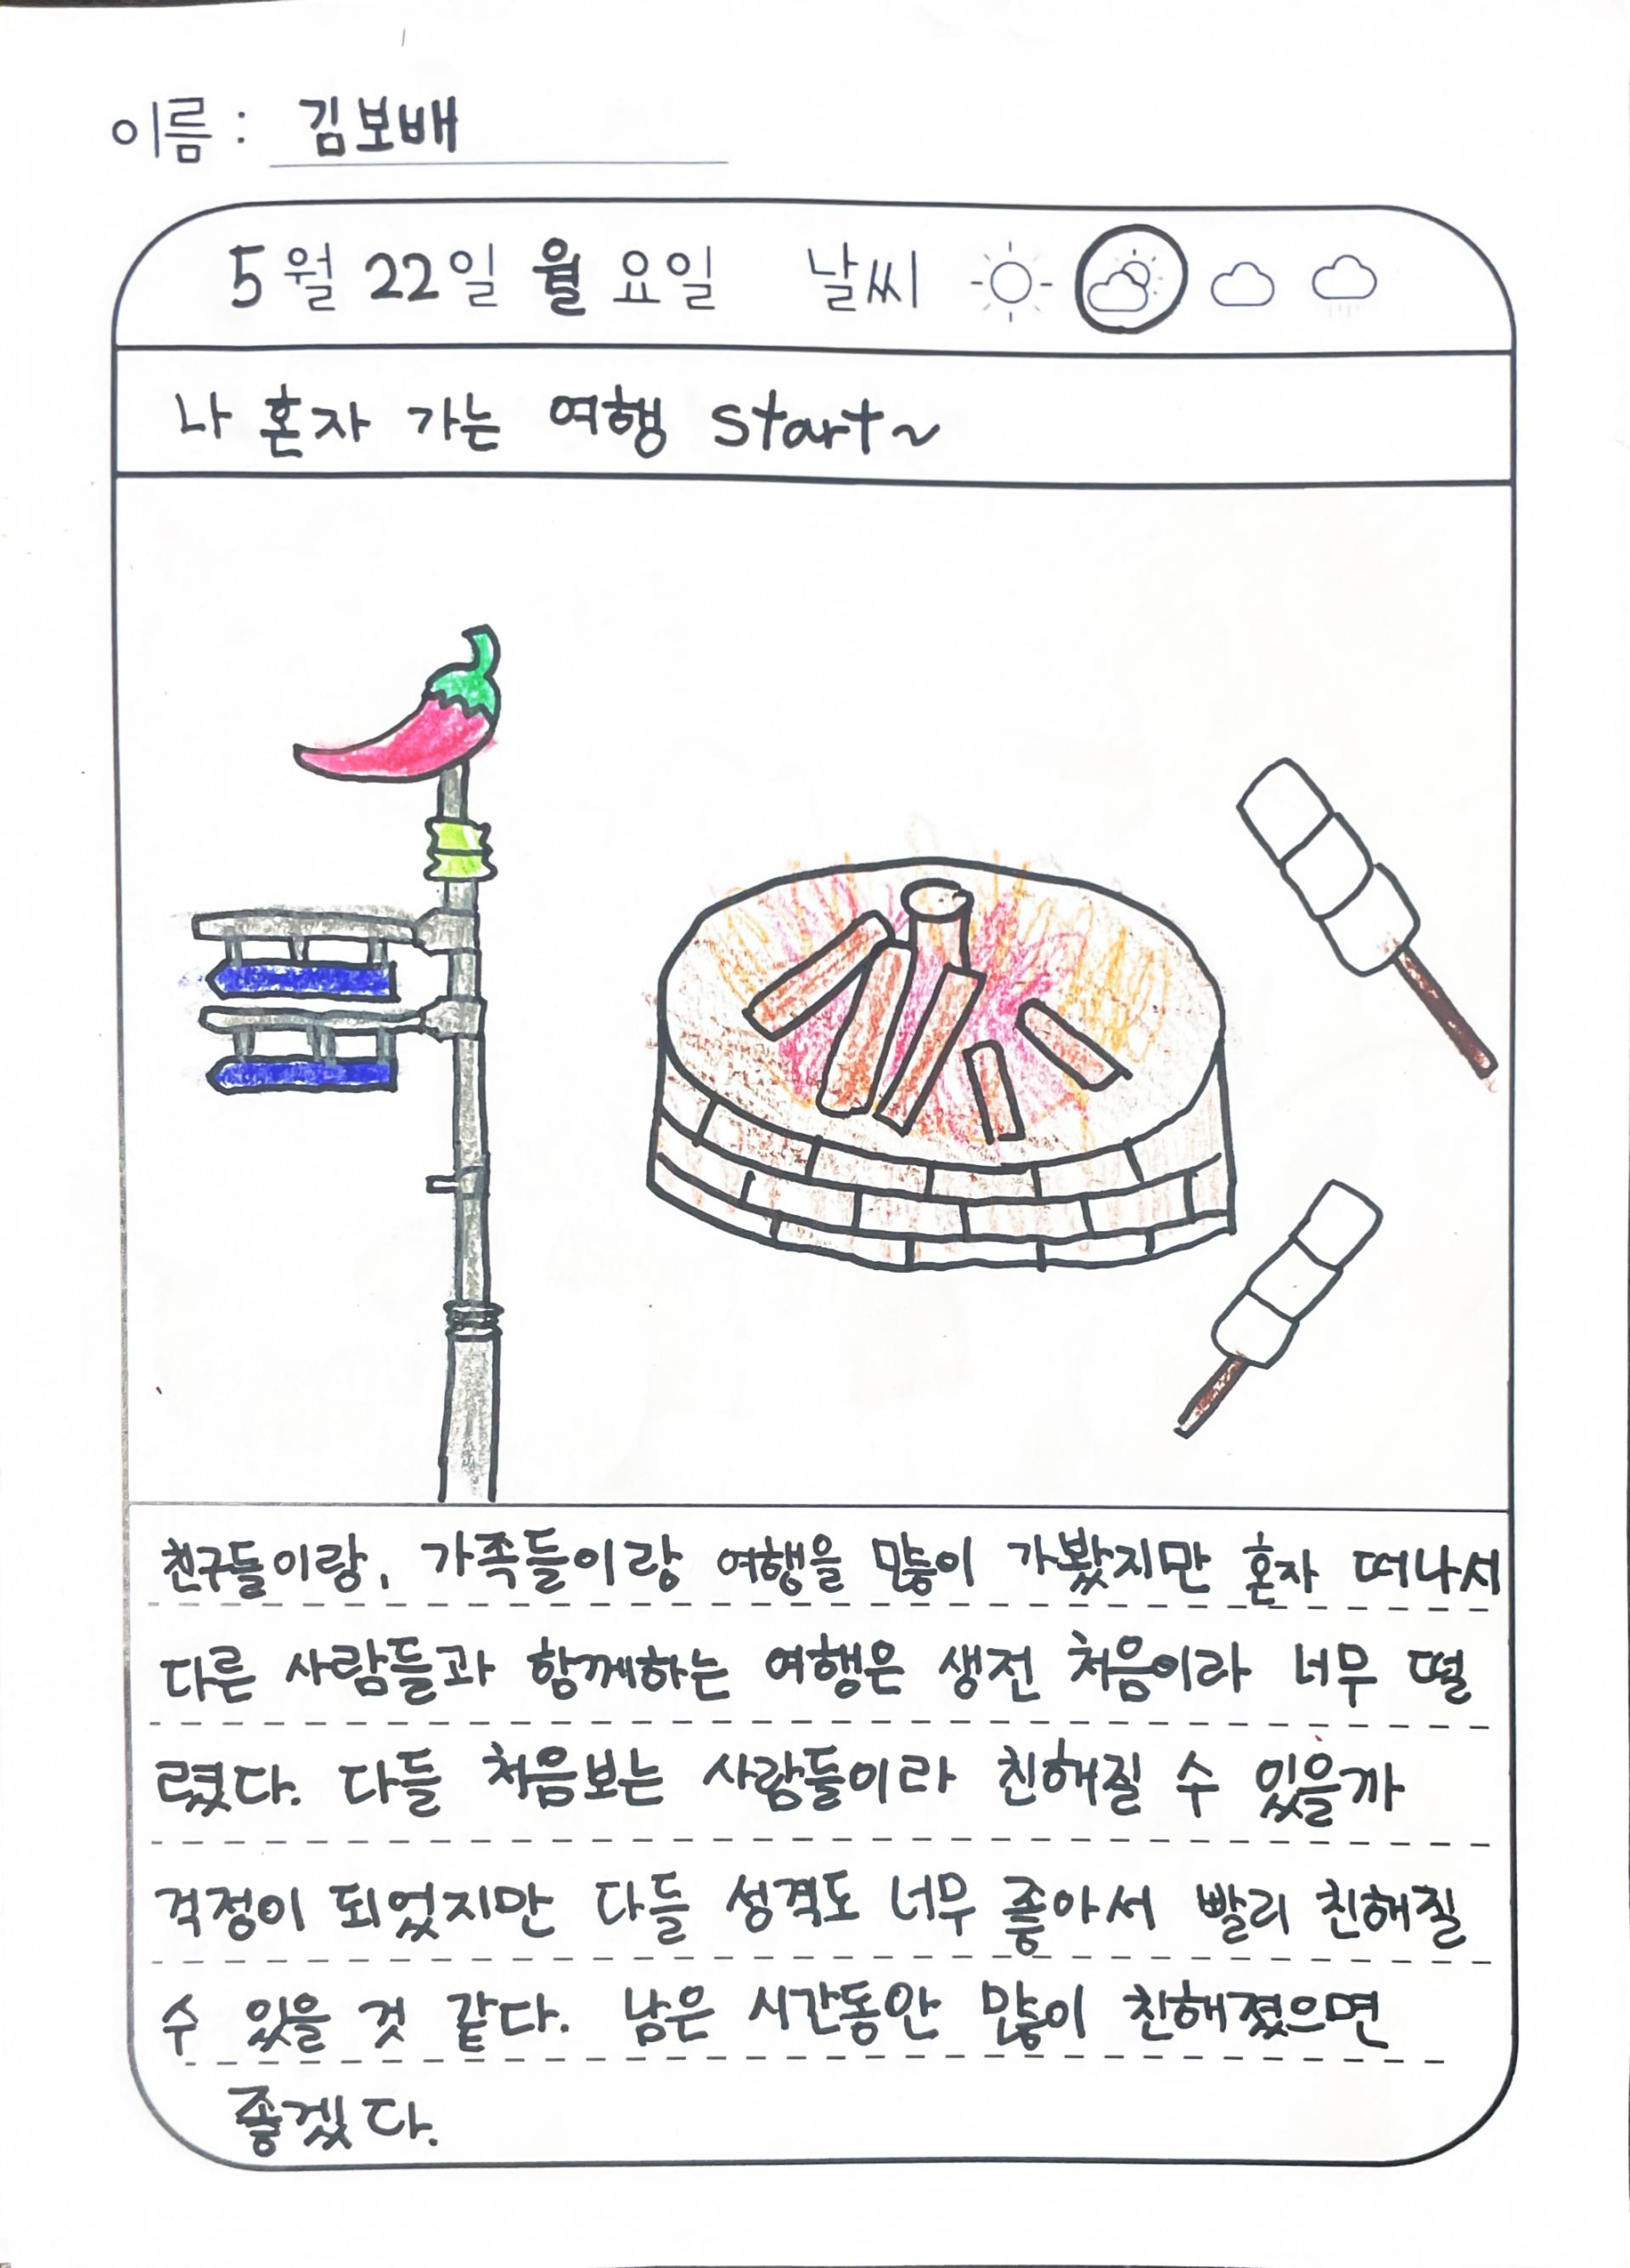 이름 : 김보배
5월 22일 월요일 날씨
나 혼자 가는 여행 start~
친구들이랑, 가족들이랑 여행을 많이 가봤지만 혼자 떠나서
다른 사람들과 함께하는 여행은 생전 처음이라 너무 떨
렸다. 다들 처음보는 사람들이라 친해질 수 있을까
걱정이 되었지만 다들 성격도 너무 좋아서 빨리 친해질
수 있을 것 같다. 남은 시간동안 많이 친해졌으면
좋겠다.